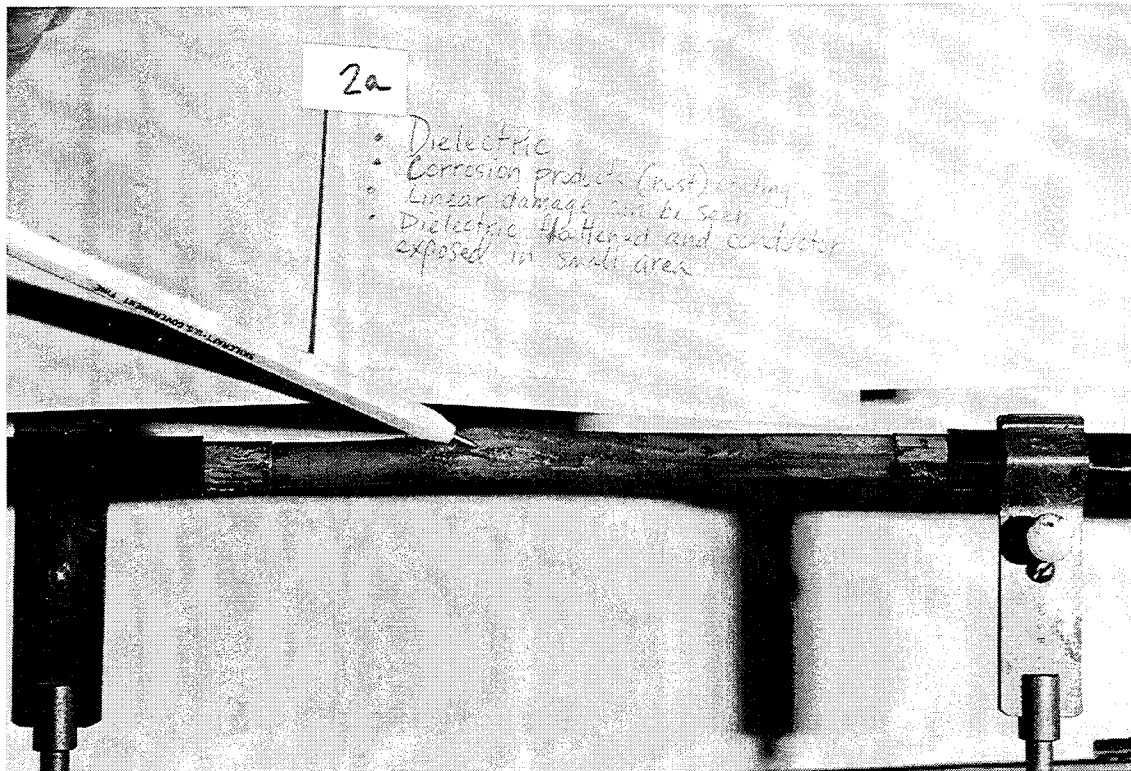 2a
• Dielectric
• Corrosion products (rust)
• Linear damage can be seen
• Dielectric flattened and conductor
exposed in small area
SKILCRAFT-U.S. GOVERNMENT FINE